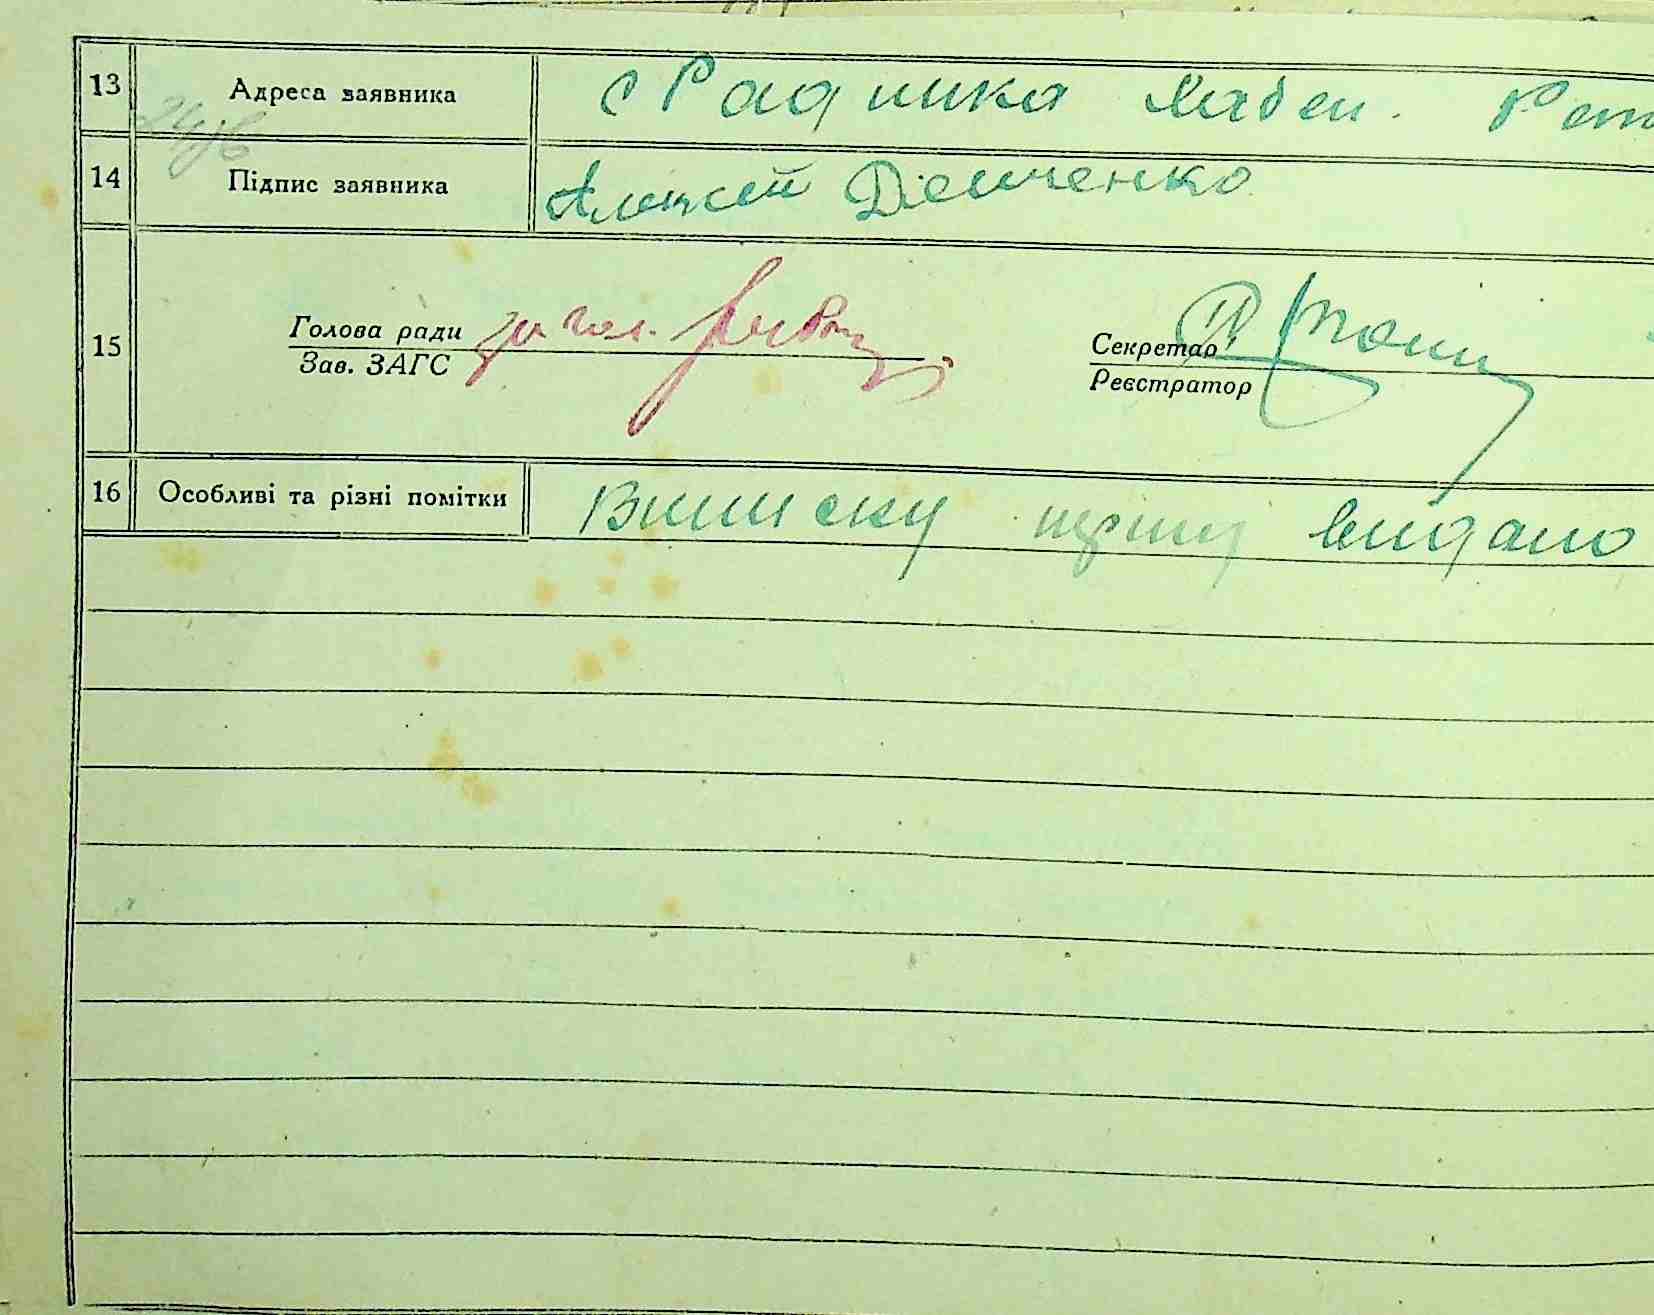 13 Адреса заявника с Радинка Хабен.
14 Підпис заявника Алексей Демченко
15 Голова ради за гол. Секретар
Зав. ЗАГС Реєстратор
16 Особливі та різні помітки Виписку першу видано